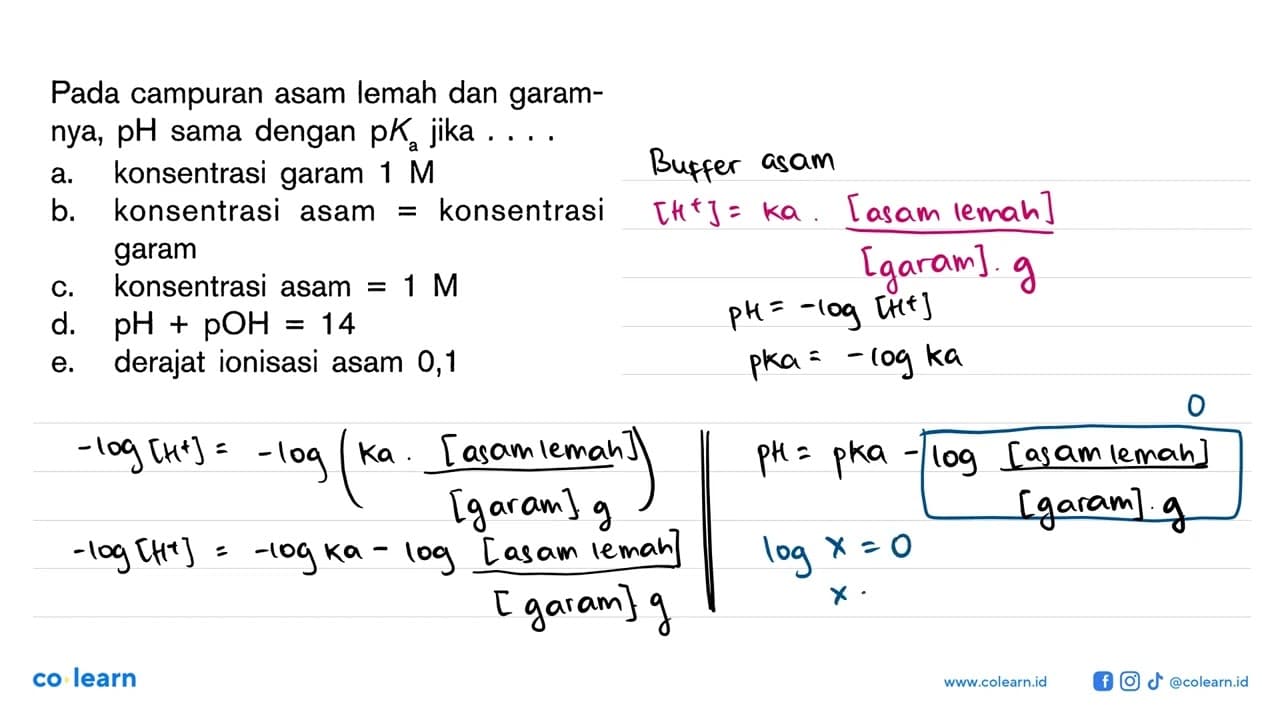 Pada campuran asam lemah dan garam-
nya, pH sama dengan pKa jika . . . .
a. konsentrasi garam 1 M
b. konsentrasi asam = konsentrasi
garam
c. konsentrasi asam = 1 M
d. pH + pOH = 14
e. derajat ionisasi asam 0,1
Buffer asam
[H+] = ka . [asam lemah]
[garam] . g
pH = -log [H+]
pka = -log ka
-log [H+] = -log (ka . [asam lemah])
[garam] . g
-log [H+] = -log ka - log [asam lemah]
[garam] g
0
pH = pka - log [asam lemah]
[garam] . g
log x = 0
x .
co learn
www.colearn.id
@colearn.id